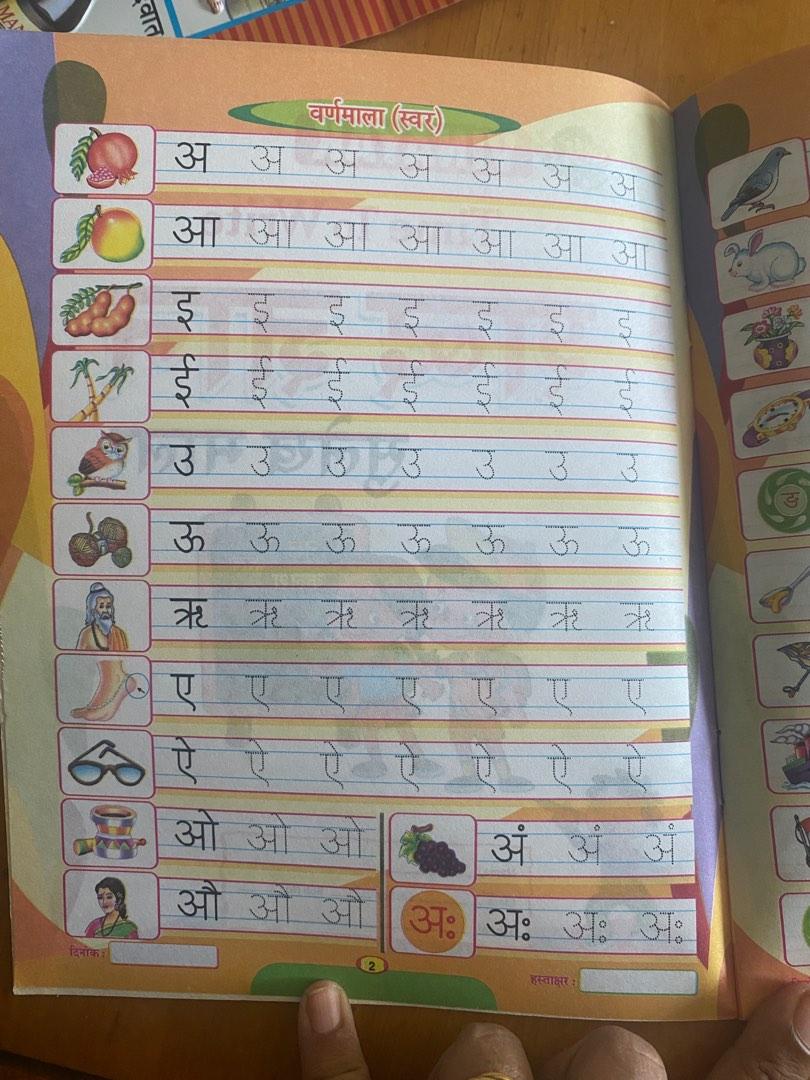 वर्णमाला (स्वर)
अ अ अ अ अ अ अ
आ आ आ आ आ आ आ
इ इ इ इ इ इ इ
ई ई ई ई ई ई ई
उ उ उ उ उ उ उ
ऊ ऊ ऊ ऊ ऊ ऊ ऊ
ऋ ऋ ऋ ऋ ऋ ऋ ऋ
ए ए ए ए ए ए ए
ऐ ऐ ऐ ऐ ऐ ऐ ऐ
ओ ओ ओ
अं अं अं
औ औ औ
अः अः अः अः
दिनांक :
2
हस्ताक्षर :
ङ